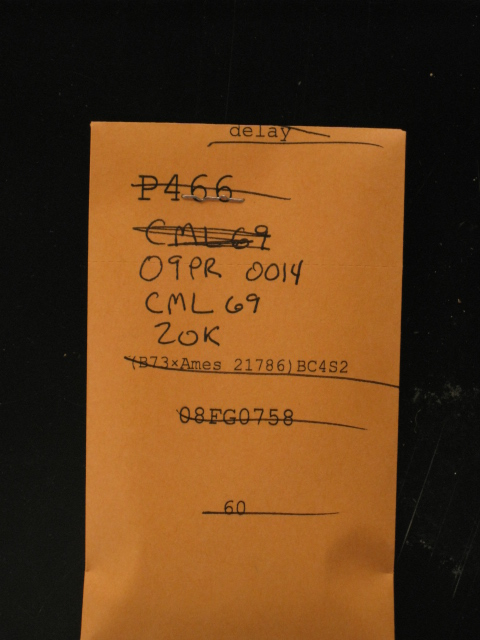 delay
P466
CML69
09PR 0014
CML 69
20K
(B73×Ames 21786)BC4S2
08FG0758
60